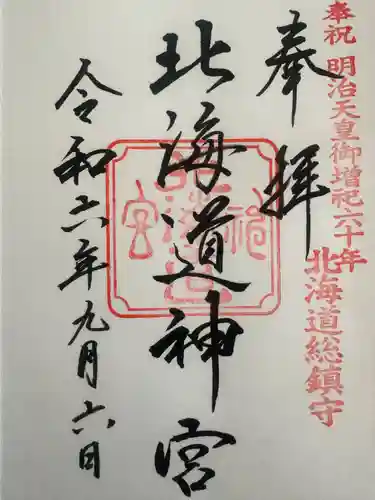 奉祝 明治天皇御増祀六十年
北海道総鎮守
奉拝
北海道神宮
令和六年九月六日